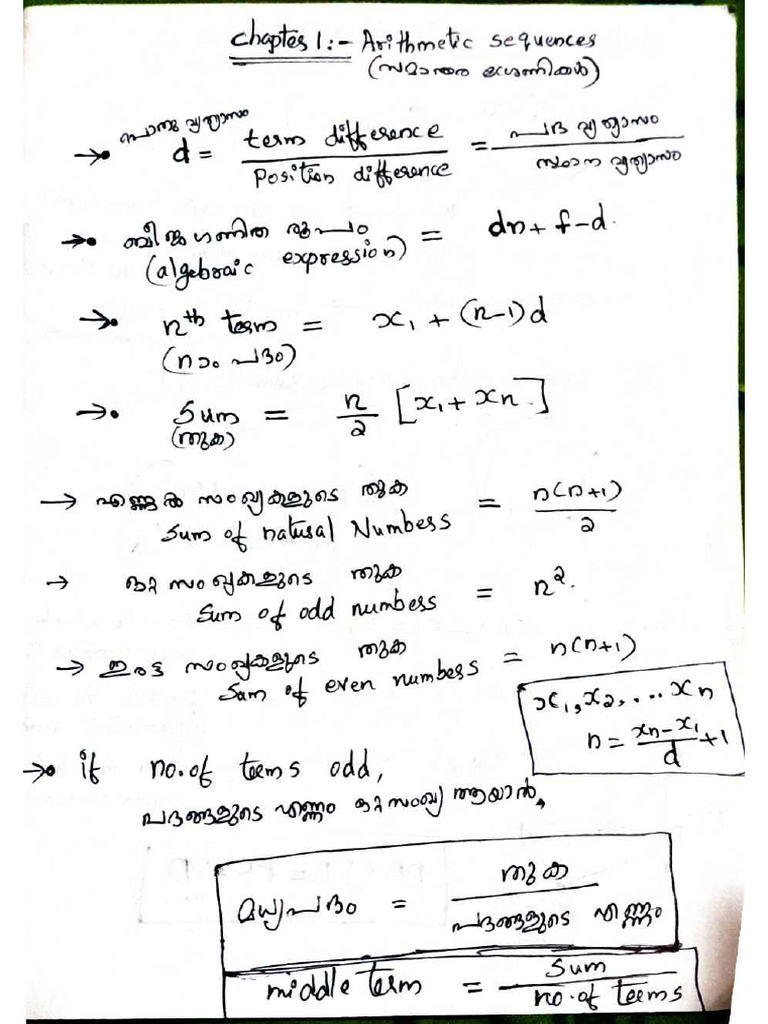 Chapter 1:- Arithmetic sequences
(സമാന്തര ശ്രേണികൾ)
പൊതു വ്യത്യാസം
→• d = term difference / Position difference = പദ വ്യത്യാസം / സ്ഥാന വ്യത്യാസം
→• ബീജഗണിത രൂപം = dn + f-d.
(algebraic expression)
→• nth term = x₁ + (n-1)d
(nാം പദം)
→• Sum = n/2 [x₁ + xn]
(തുക)
→ എണ്ണൽ സംഖ്യകളുടെ തുക = n(n+1)/2
Sum of natural Numbers
→ ഒറ്റ സംഖ്യകളുടെ തുക = n².
Sum of odd numbers
→ ഇരട്ട സംഖ്യകളുടെ തുക = n(n+1)
Sum of even numbers
x₁, x₂, ... xn
n = (xn - x₁)/d + 1
→• if no. of terms odd,
പദങ്ങളുടെ എണ്ണം ഒറ്റസംഖ്യ ആയാൽ,
മധ്യപദം = തുക / പദങ്ങളുടെ എണ്ണം
middle term = Sum / no. of terms